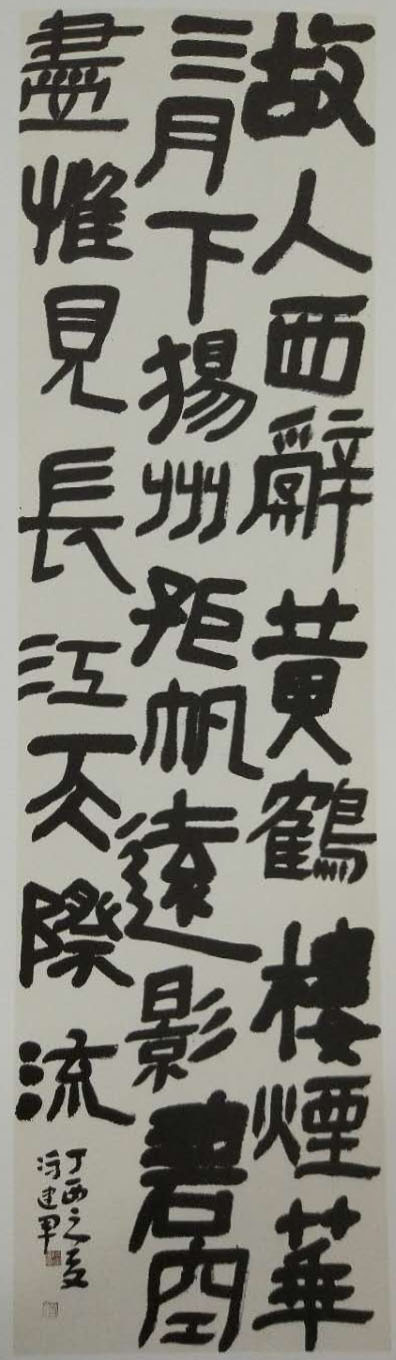 故人西辭黃鶴樓煙華
三月下揚州孤帆遠影碧空
盡惟見長江天際流
丁酉之夏
建軍